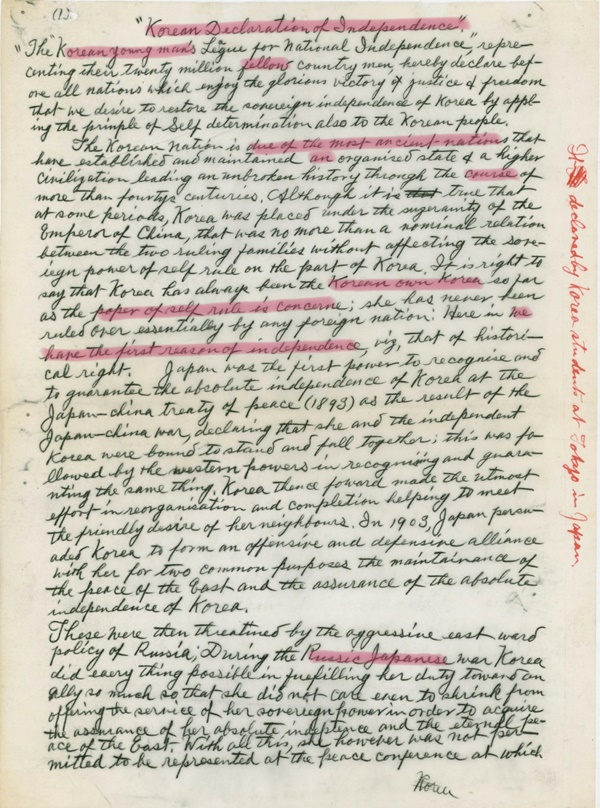 (1)
"Korean Declaration of Independence".
"The "Korean young man's Legue for National Independence," repre-
centing their twenty million fellow country men, hereby declare bef-
ore all nations which enjoy the glorious victory of justice & freedom
that we desire to restore the sovereign independence of Korea by appl-
ing the prinple of Self determination also to the Korean people.
The Korean Nation is due of the most ancient nations that
have established and maintained an organised state & a higher
civilization leading an unbroken history through the course of
more than fourtys centuries. Although it is that true that
at some periods, Korea was placed under the suzerainity of the
Emperor of China, that was no more than a nominal relation
between the two ruling families without affecting the sove-
iegn power of self rule on the part of Korea. It is right to
say that Korea has always been the Korean own Korea so far
as the paper of self rule is concerne; she has never been
ruled over essentially by any foreign nation. Here in we
have the first reason of independence, viz, that of histori-
cal right. Japan was the first power to recognise and
to guarantee the absolute independence of Korea at the
Japan-china treaty of peace (1893) as the result of the
Japan-china war, declaring that she and the independent
Korea were bound to stand and fall together; this was fo-
llowed by the western powers in recognising and guara-
nting the same thing. Korea thence foward made the utmost
effort in reorganisation and completion helping to meet
the friendly desire of her neighbours. In 1903, Japan persu-
aded Korea to form an offensive and defensive alliance
with her for two common purposes the maintainance of
the peace of the East and the assurance of the absolute
independence of Korea.
These were then threatined by the aggressive east ward
policy of Russia; During the Russic Japanese war Korea
did eaery thing possible in fuefilling her duty toward an
ally so much so that she did not care even to shrink from
offering the service of her sovereign power in order to acquire
the assurance of her absolute indeptence and the eternal pe-
ace of the East. With all this, she however was not per-
mitted to be represented at the peace conference at which
Korea
It declared by Korea students at Tokyo in Japan.